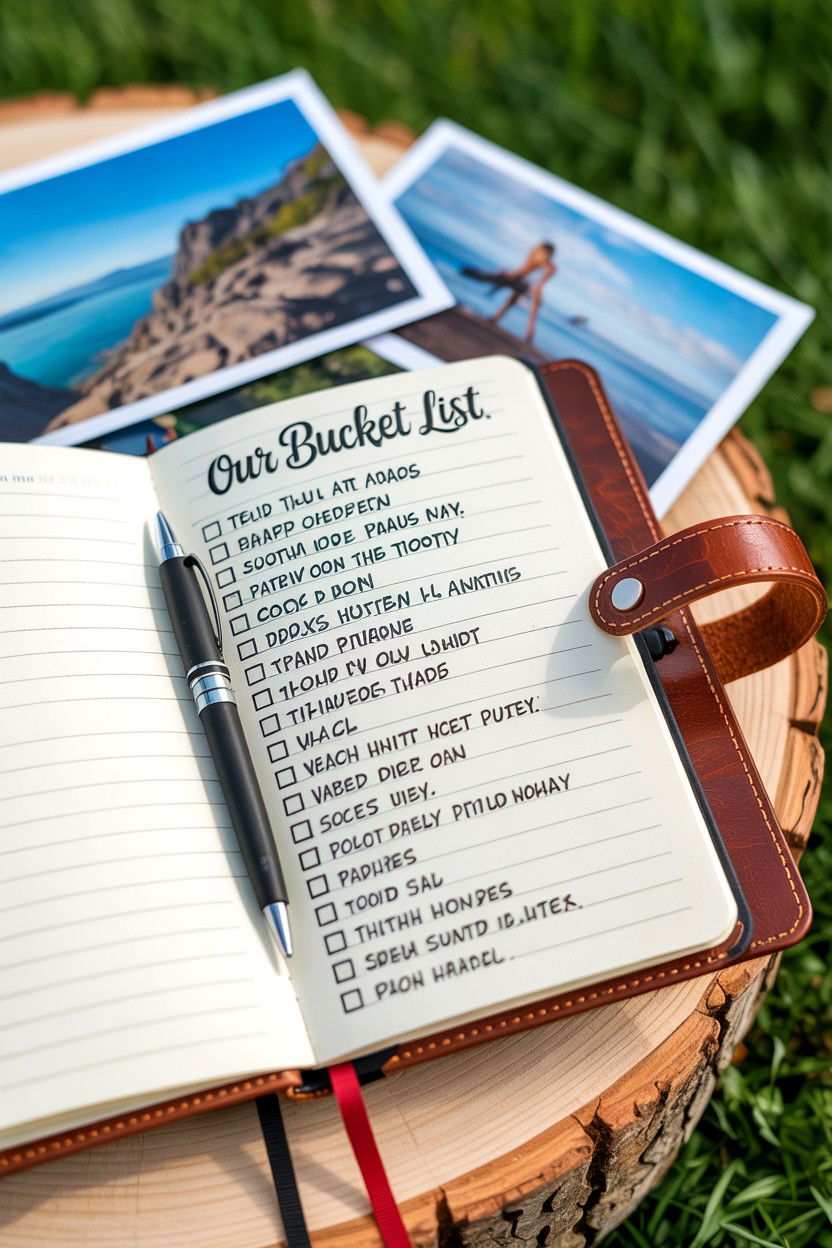 Our Bucket List.
TEUD THUL AT ADAOS
BAAPP OHEDPETN
SOOTH IODE PAAUS NAY.
PATRIV OON THE TOOTY
COOC D DON
DDOXS HUTTEN I-L ANNTTIS
TPAND PTUAONE
1HOUD I'V OLV LOHIDT
TIHAUEOS THADS
VLACL
VEACH HNITT HCET PUTEY.
VABED DIER OAN
SOCES UIEY.
POLOT DAELY PTTLD NOHAY
PADHRES
TOOID SAL
THITHH HONDES
SDEH SUNTD IO.UTEX.
PAON HAADEL.